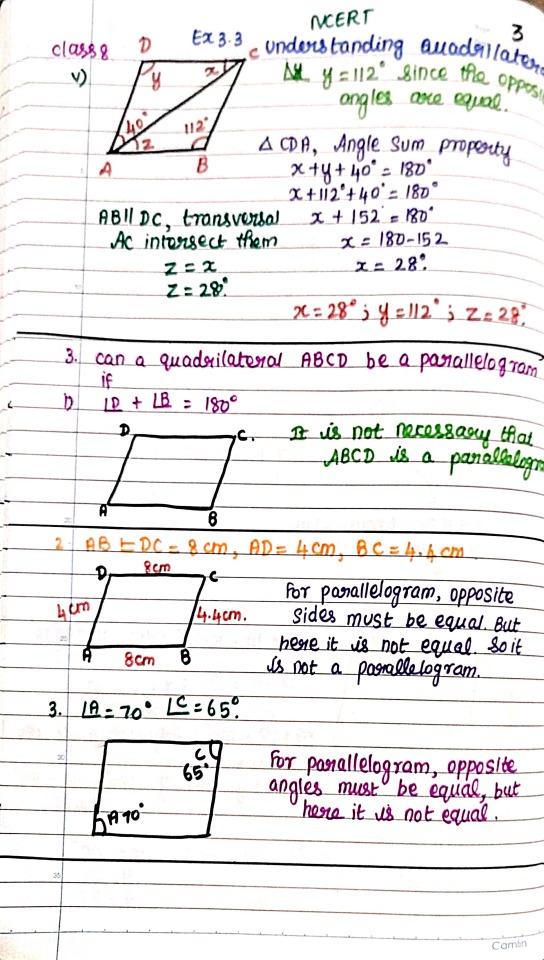 NCERT
3
class 8 Ex 3.3 Understanding Quadrilatera
v)
D
C
y
x
40°
z
112°
A
B
y = 112° since the opposi
angles are equal.
△ CDA, Angle Sum property
x + y + 40° = 180°
x + 112° + 40° = 180°
x + 152° = 180°
x = 180 - 152
x = 28°.
AB || DC, transversal
AC intersect them
z = x
z = 28°.
x = 28° ; y = 112° ; z = 28°.
3. can a quadrilateral ABCD be a parallelogram
if
i) ∠D + ∠B = 180°
D
C.
A
B
It is not necessary that
ABCD is a parallelogra
2. AB = DC = 8 cm, AD = 4 cm, BC = 4.4 cm
D
8cm
C
4cm
4.4cm.
A
8cm
B
For parallelogram, opposite
sides must be equal. But
here it is not equal. So it
is not a parallelogram.
3. ∠A = 70° ∠C = 65°.
C
65°
A 70°
For parallelogram, opposite
angles must be equal, but
here it is not equal.
Camlin